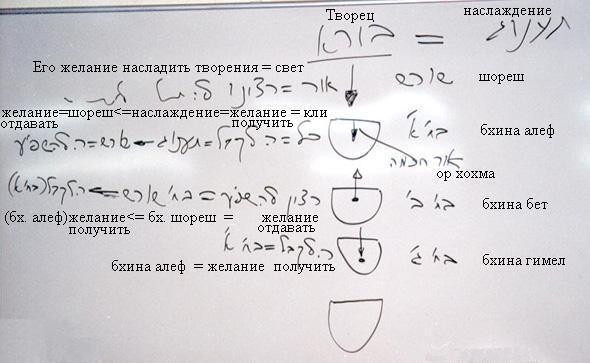 Творец наслаждение
בורא = תענוג
Его желание насладить творения = свет
אור = רצינו שורש шореш
желание=шореш<=наслаждение=желание = кли
отдавать получить бхина алеф
כלי = ר. לקבל = תענוג שורש = ר. להשפיע בח' א'
אור חכמה
ор хохма
רצון להשפיע = בח' שורש ר. לקבל (בח' א') בח' ב' бхина бет
(бх. алеф)желание<= бх. шореш = желание
получить отдавать
ר. לקבל = בח' א' בח' ג' бхина гимел
бхина алеф = желание получить